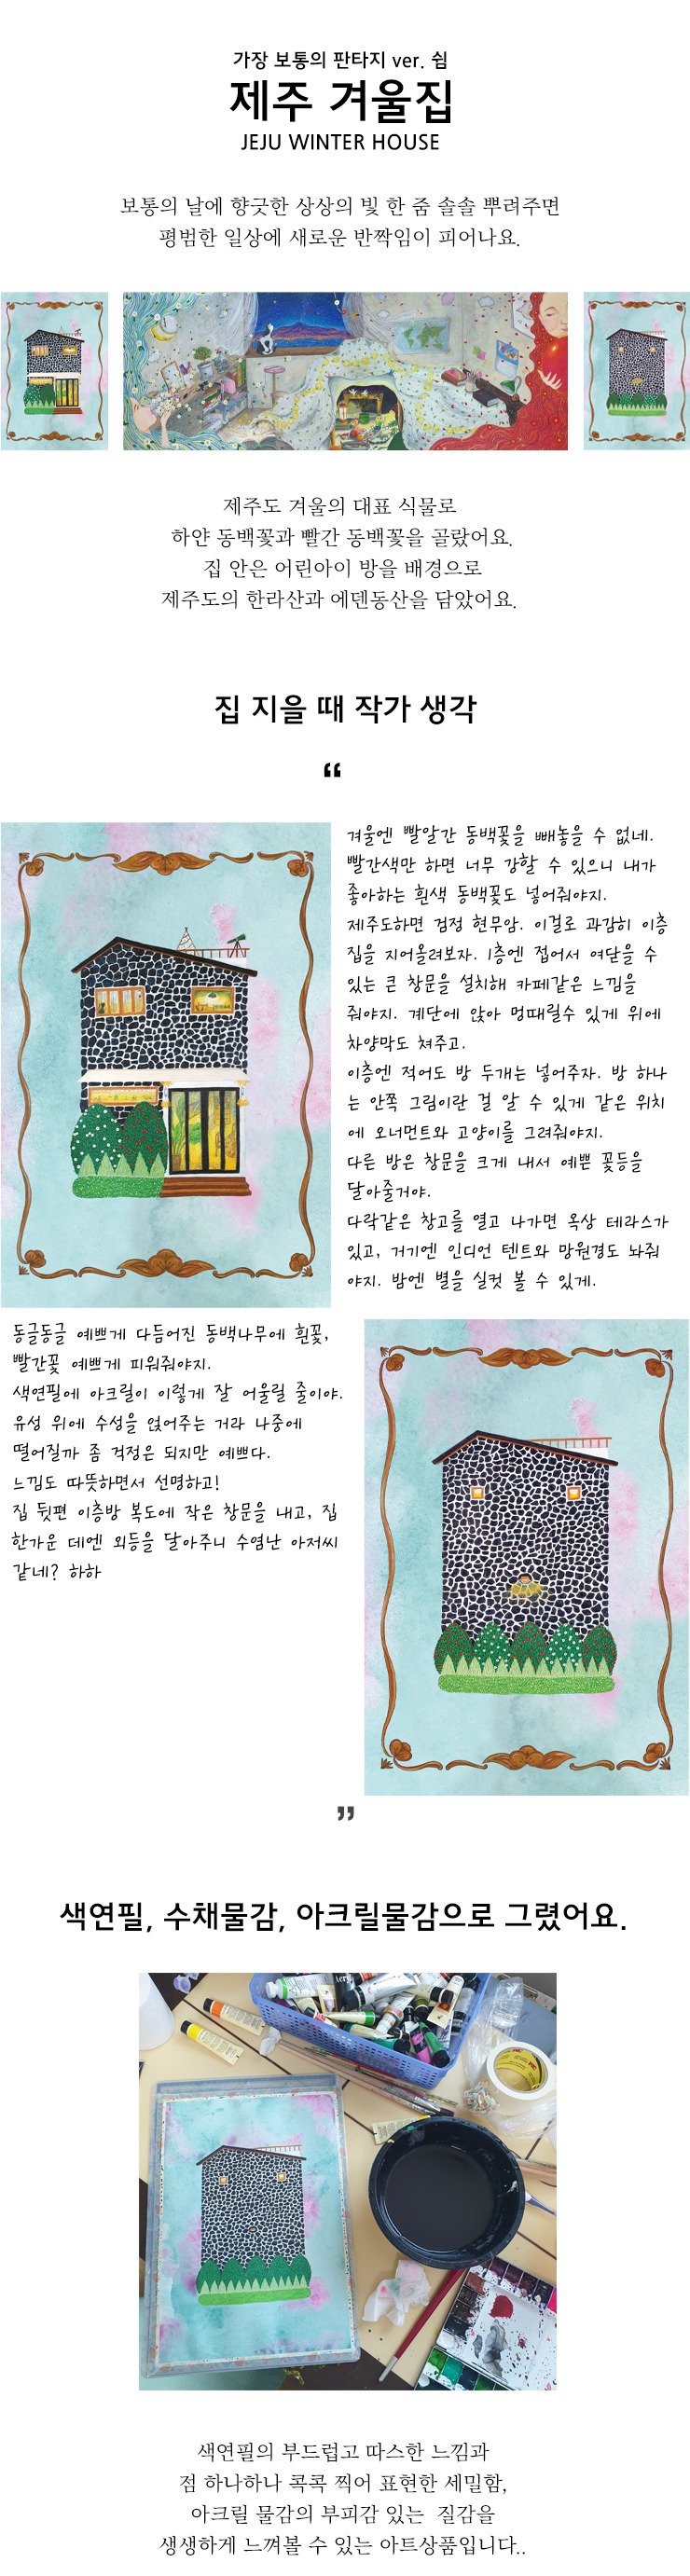 가장 보통의 판타지 ver. 쉼
제주 겨울집
JEJU WINTER HOUSE
보통의 날에 향긋한 상상의 빛 한 줌 솔솔 뿌려주면
평범한 일상에 새로운 반짝임이 피어나요.
제주도 겨울의 대표 식물로
하얀 동백꽃과 빨간 동백꽃을 골랐어요.
집 안은 어린아이 방을 배경으로
제주도의 한라산과 에덴동산을 담았어요.
집 지을 때 작가 생각
“
겨울엔 빨알간 동백꽃을 빼놓을 수 없네.
빨간색만 하면 너무 강할 수 있으니 내가
좋아하는 흰색 동백꽃도 넣어줘야지.
제주도하면 검정 현무암. 이걸로 과감히 이층
집을 지어올려보자. 1층엔 접어서 여닫을 수
있는 큰 창문을 설치해 카페같은 느낌을
줘야지. 계단에 앉아 멍때릴수 있게 위에
차양막도 쳐주고.
이층엔 적어도 방 두개는 넣어주자. 방 하나
는 안쪽 그림이란 걸 알 수 있게 같은 위치
에 오너먼트와 고양이를 그려줘야지.
다른 방은 창문을 크게 내서 예쁜 꽃등을
달아줄거야.
다락같은 창고를 열고 나가면 옥상 테라스가
있고, 거기엔 인디언 텐트와 망원경도 놔줘
야지. 밤엔 별을 실컷 볼 수 있게.
동글동글 예쁘게 다듬어진 동백나무에 흰꽃,
빨간꽃 예쁘게 피워줘야지.
색연필에 아크릴이 이렇게 잘 어울릴 줄이야.
유성 위에 수성을 얹어주는 거라 나중에
떨어질까 좀 걱정은 되지만 예쁘다.
느낌도 따뜻하면서 선명하고!
집 뒷편 이층방 복도에 작은 창문을 내고, 집
한가운 데엔 외등을 달아주니 수염난 아저씨
같네? 하하
”
색연필, 수채물감, 아크릴물감으로 그렸어요.
색연필의 부드럽고 따스한 느낌과
점 하나하나 콕콕 찍어 표현한 세밀함,
아크릴 물감의 부피감 있는 질감을
생생하게 느껴볼 수 있는 아트상품입니다..